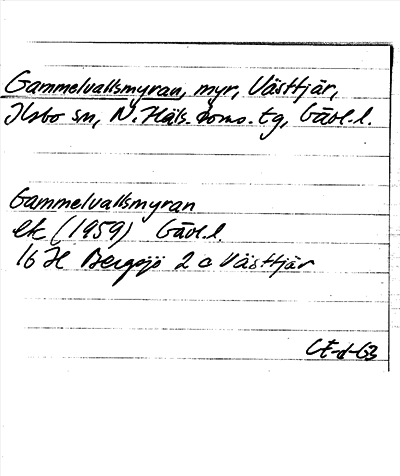 Gammelvallsmyran, myr, Västtjär,
Ilsbo sn, N. Häls. doms. tg, Gävl.l.
Gammelvallsmyran
ek (1959) Gävl.l.
16 H Bergsjö 2 c Västtjär